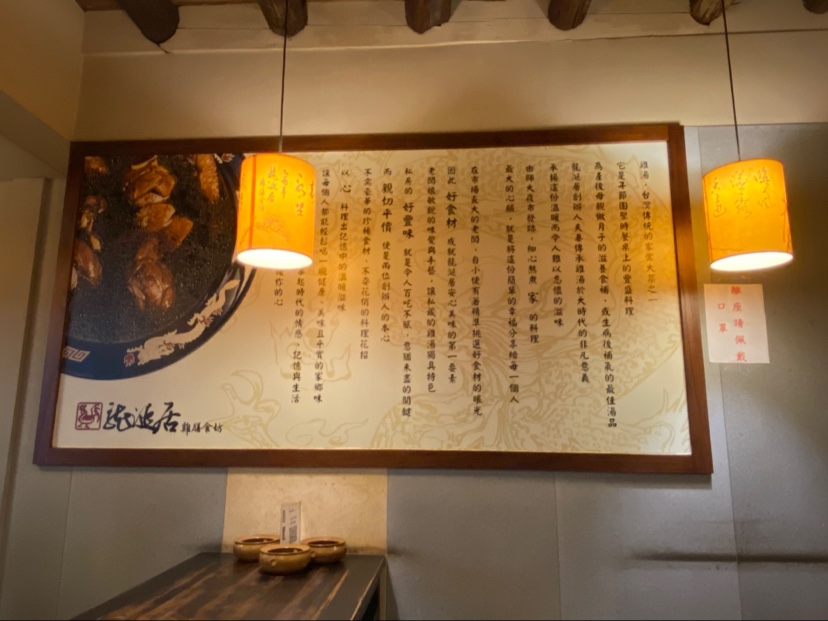 雞湯，台灣傳統的家常大菜之一
它是年節團聚時餐桌上的豐盛料理
為產後母親做月子的滋養食補，或生病後補氣的最佳湯品
龍涎居創辦人夫妻傳承雞湯於大時代的非凡意義
承接這份溫暖而令人難以忘懷的滋味
由師大夜市發跡，細心熬煮 家 的料理
最大的心願，就是將這份簡單的幸福分享給每一個人
在市場長大的老闆，自小便有著精準挑選好食材的眼光
因此 好食材 成就龍涎居安心美味的第一要素
老闆娘敏銳的味覺與手藝，讓私藏的雞湯獨具特色
私房的 好當味 就是令人百吃不膩，意猶未盡的關鍵
而 親切平價 便是兩位創辦人的本心
不需豪華的珍稀食材，不要花俏的料理花招
以 心 料理出記憶中的溫暖滋味
讓每個人都能輕鬆喝一碗健康、美味且平實的家鄉味
起時代的情感、記憶與生活
作的心
龍涎居
雞膳食坊
離座請佩戴
口罩